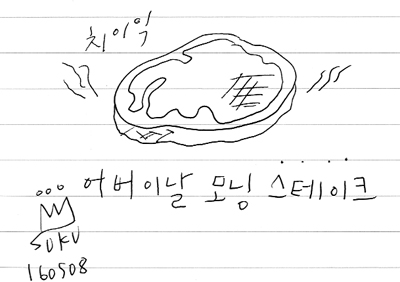 치이익
어버이날 모닝 스테이크
SUKU
160508